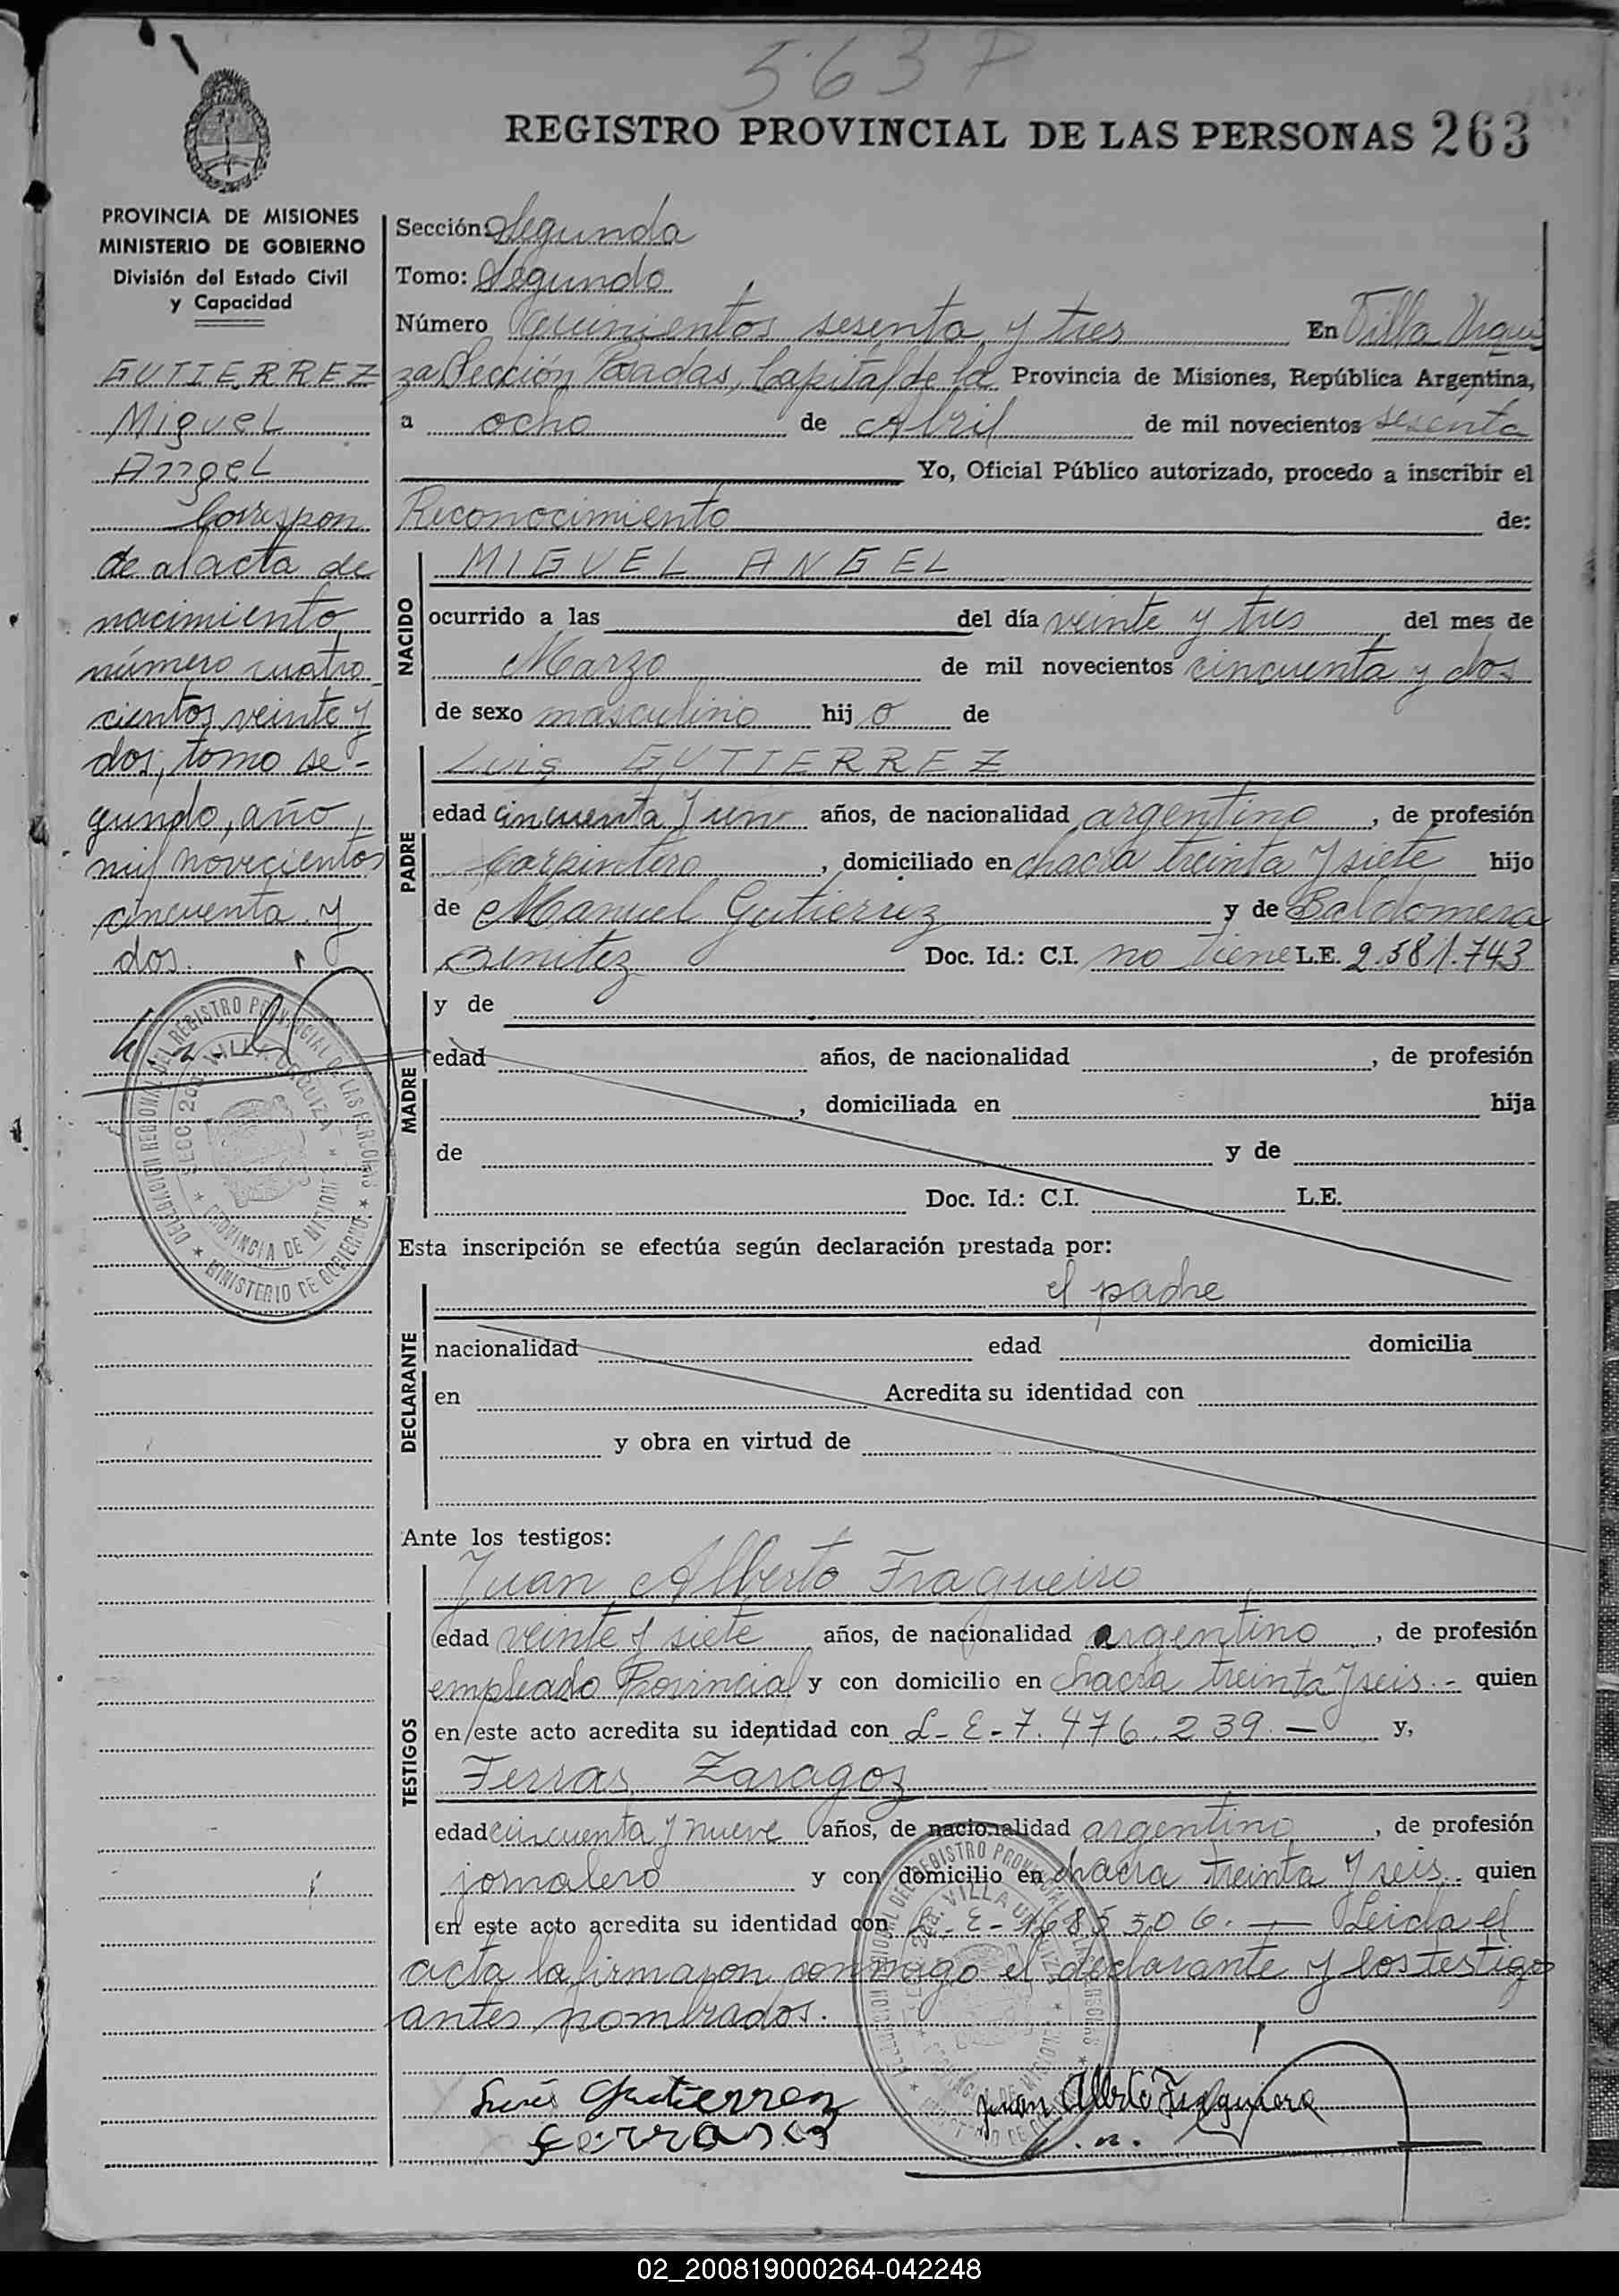 563 P
REGISTRO PROVINCIAL DE LAS PERSONAS 263
PROVINCIA DE MISIONES
MINISTERIO DE GOBIERNO
División del Estado Civil
y Capacidad
GUTIERREZ
Miguel
Angel
Correspon
de al acta de
nacimiento
número cuatro
cientos veinte y
dos, tomo se-
gundo, año
mil novecientos
cincuenta y
dos.
Sección: Segunda
Tomo: Segundo
Número quinientos sesenta y tres En Villa Urqui
za Sección Posadas, Capital de la Provincia de Misiones, República Argentina,
a ocho de Abril de mil novecientos sesenta
Yo, Oficial Público autorizado, procedo a inscribir el
Reconocimiento de:
NACIDO
MIGUEL ANGEL
ocurrido a las del día veinte y tres del mes de
Marzo de mil novecientos cincuenta y dos
de sexo masculino hijo de
PADRE
Luis GUTIERREZ
edad cincuenta y un años, de nacionalidad argentino, de profesión
carpintero, domiciliado en chacra treinta y siete hijo
de Manuel Gutierrez y de Baldomera
Benitez Doc. Id.: C.I. no tiene L.E. 2.581.743
MADRE
y de
edad años, de nacionalidad , de profesión
, domiciliada en hija
de y de
Doc. Id.: C.I. L.E.
Esta inscripción se efectúa según declaración prestada por:
el padre
DECLARANTE
nacionalidad edad domicilia
en Acredita su identidad con
y obra en virtud de
Ante los testigos:
TESTIGOS
Juan Alberto Fragueiro
edad veinte y siete años, de nacionalidad argentino, de profesión
empleado Provincial y con domicilio en chacra treinta y seis.- quien
en este acto acredita su identidad con L-E-7.476.239.— y,
Ferras Zaragoz
edad cincuenta y nueve años, de nacionalidad argentino, de profesión
jornalero y con domicilio en chacra treinta y seis.. quien
en este acto acredita su identidad con L-E-1685506.— Leida el
acta la firmaron conmigo el declarante y los testigos
antes nombrados.
Luis Gutierrez
Juan Alberto Fragueiro
DELEGACION REGIONAL DEL REGISTRO PROVINCIAL DE LAS PERSONAS
SECC 2da. VILLA URQUIZA
PROVINCIA DE MISIONES
MINISTERIO DE GOBIERNO
02_200819000264-042248